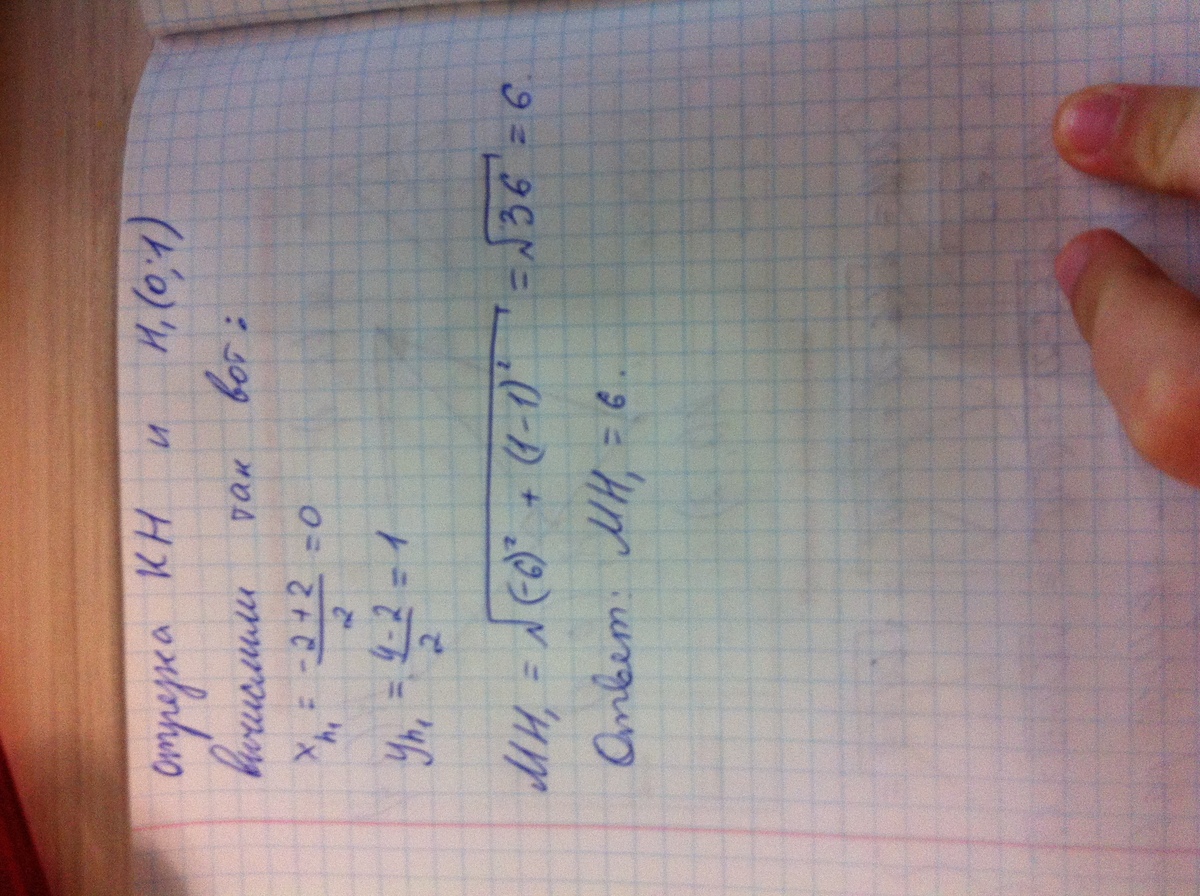 отрезка КН и Н₁(0;1)
вычислили так вот:
x_{h₁} = \frac{-2+2}{2} = 0
y_{h₁} = \frac{4-2}{2} = 1
МН₁ = \sqrt{(-6)² + (1-1)²} = \sqrt{36} = 6.
Ответ: МН₁ = 6.